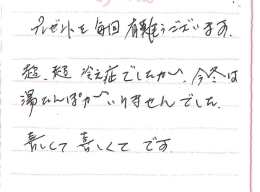 プレゼントを毎回有難うございます。
超、超 冷え症でしたが〜、今冬は
湯たんぽが〜いりませんでした。
喜しくて 喜しくて です。